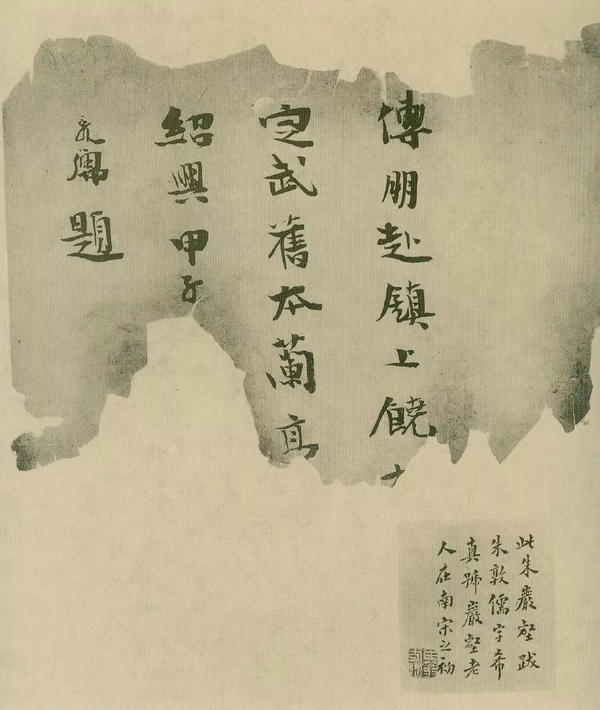 傅朋赴鎮上饒
定武舊本蘭亭
紹興甲子
題
此朱巖壑跋
朱敦儒字希
真號巖壑老
人在南宋之初